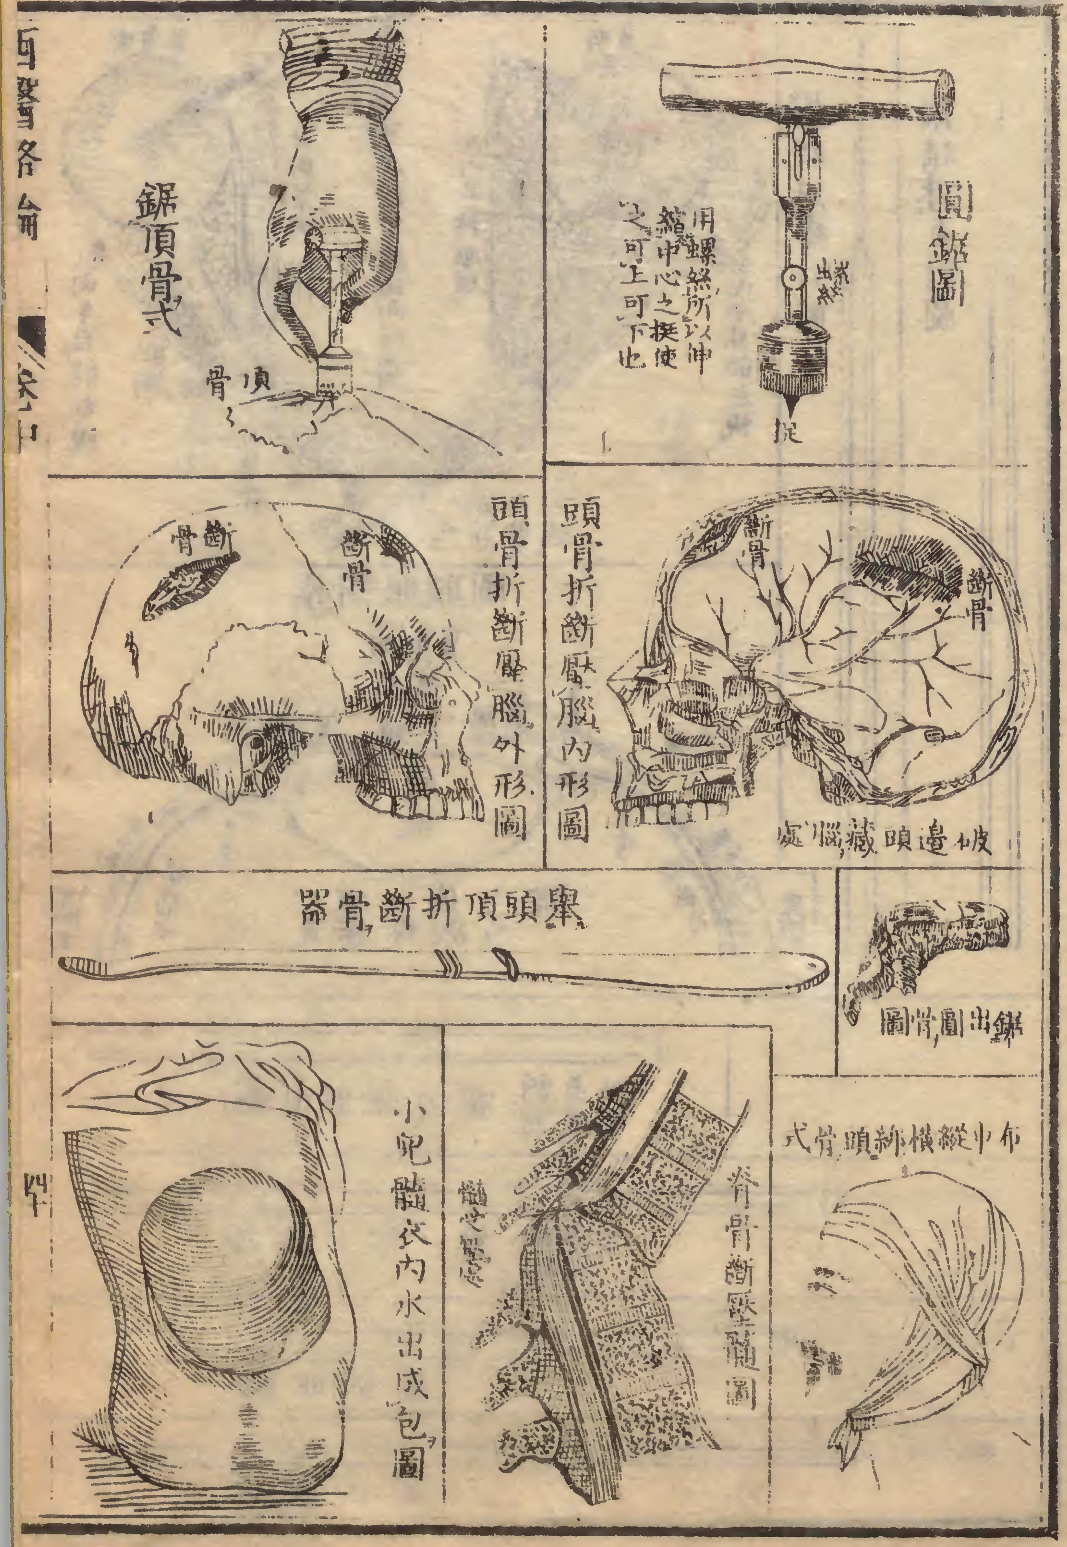 圓鋸圖
螺絲出
用螺絲所以伸
縮中心之挺使
之可上可下也
挺
鋸頂骨式
頂骨
西醫略論
卷中
頭骨折斷壓腦內形圖
斷骨
斷骨
破邊頭藏腦處
頭骨折斷壓腦外形圖
斷骨
斷骨
舉頭頂折斷骨器
鋸出圓骨圖
布巾縱橫綁頭骨式
脊骨斷壓髓圖
髓受壓處
小兒髓衣內水出成包圖
四十